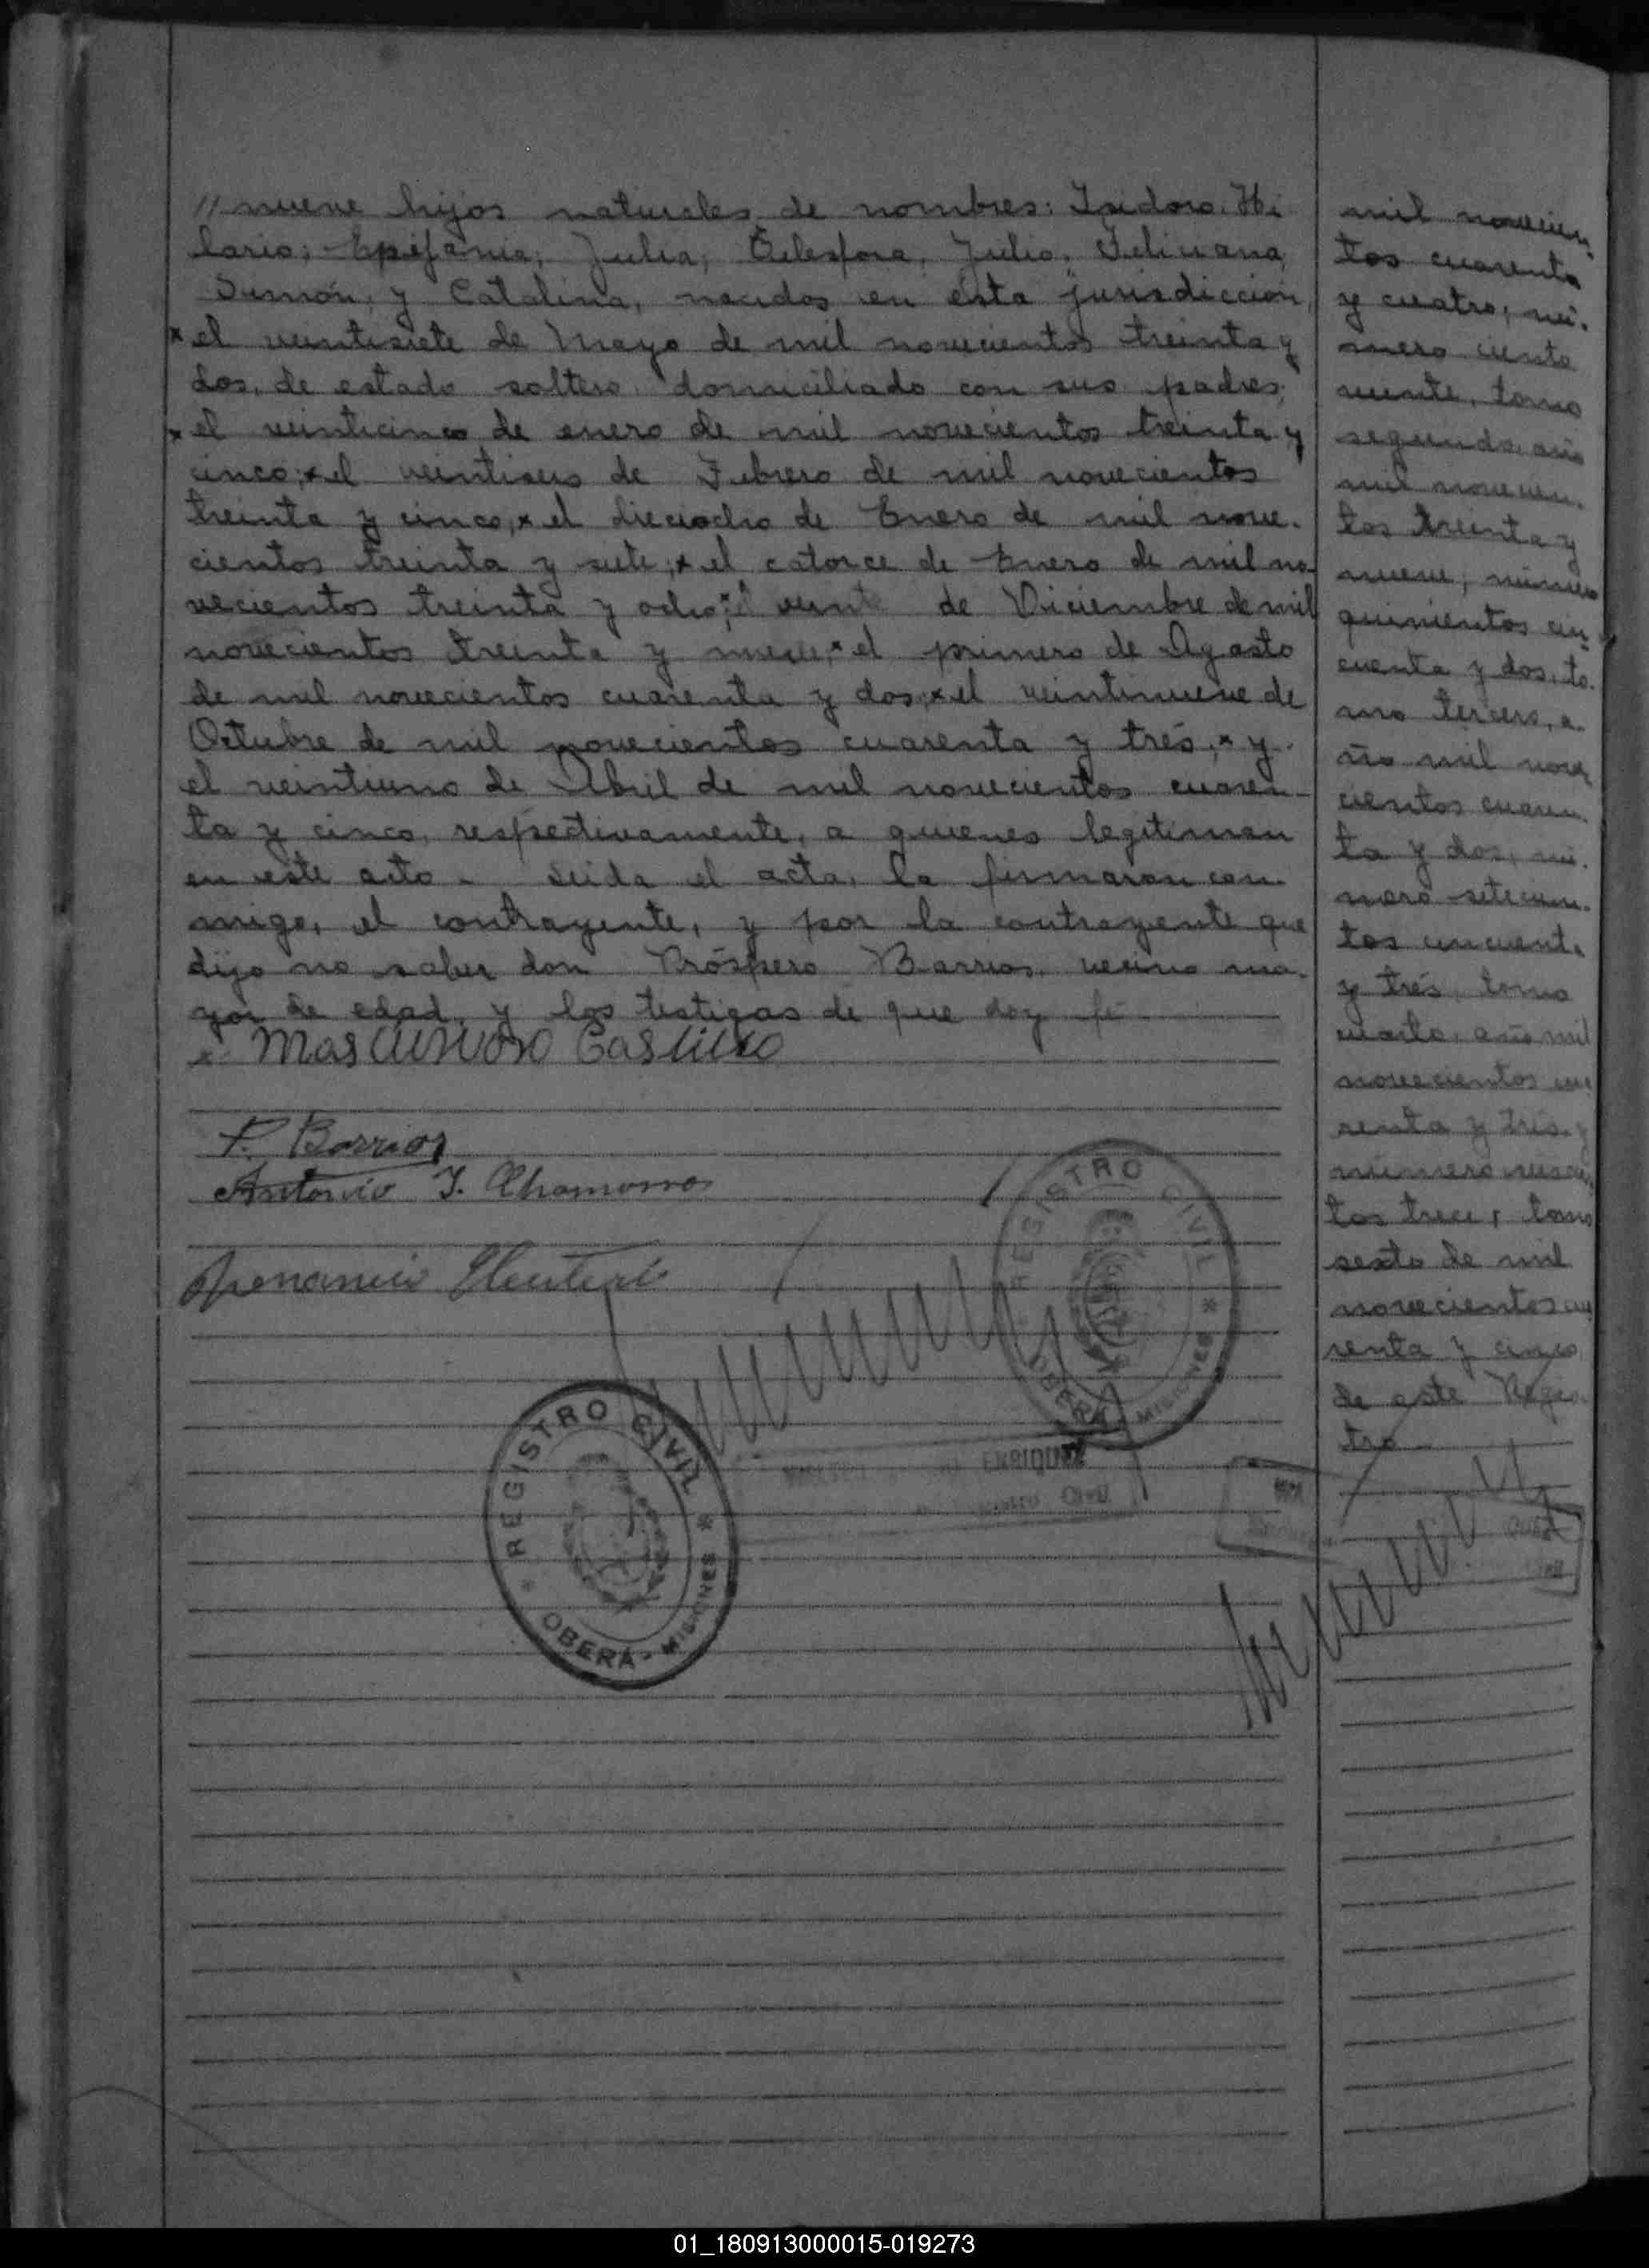 // nueve hijos naturales de nombres: Isidoro Hi
lario; Epifania; Julia; Telesfora, Julio, Feliciana,
Simón, y Catalina, nacidos en esta jurisdicción,
x el veintisiete de Mayo de mil novecientos treinta y
dos, de estado soltero domiciliado con sus padres;
x el veinticinco de enero de mil novecientos treinta y
cinco; x el veintiseis de Febrero de mil novecientos
treinta y cinco, x el dieciocho de Enero de mil nove-
cientos treinta y siete; x el catorce de Enero de mil no-
vecientos treinta y ocho; x el veinte de Diciembre de mil
novecientos treinta y nueve; x el primero de Agosto
de mil novecientos cuarenta y dos; x el veintinueve de
Octubre de mil novecientos cuarenta y trés; x y
el veintiuno de Abril de mil novecientos cuaren-
ta y cinco, respectivamente, a quienes legitiman
en este acto - Leida el acta, la firmaron con-
migo, el contrayente, y por la contrayente que
dijo no saber don Próspero Barrios vecino ma-
yor de edad, y los testigos de que doy fé
x Castillo
P. Barrios
Antonio I. Chamorro
REGISTRO CIVIL
OBERÁ - MISIONES
REGISTRO CIVIL
OBERÁ - MISIONES
ENRIQUEZ
Civil
mil novecien-
tos cuarenta
y cuatro, nú-
mero ciento
veinte, tomo
segundo, año
mil novecien-
tos treinta y
nueve, número
quinientos cin-
cuenta y dos, to-
mo tercero, a-
ño mil nove
cientos cuaren-
ta y dos, nú-
mero setecien-
tos cincuenta
y trés, tomo
cuarto, año mil
novecientos cua
renta y trés y
número
tos trece, tomo
sexto de mil
novecientos cua
renta y cinco
de este Regis-
tro
01_180913000015-019273